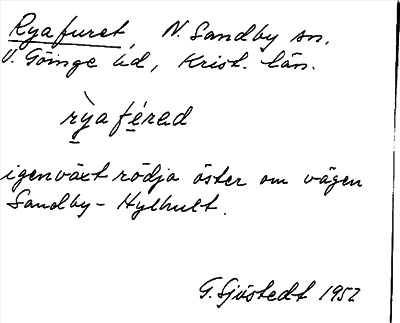 Ryafuret, N. Sandby sn.
V. Göinge hd, Krist. län.
rỳa férad
igenväxt rödja öster om vägen
Sandby - Hylhult.
G. Sjöstedt 1952